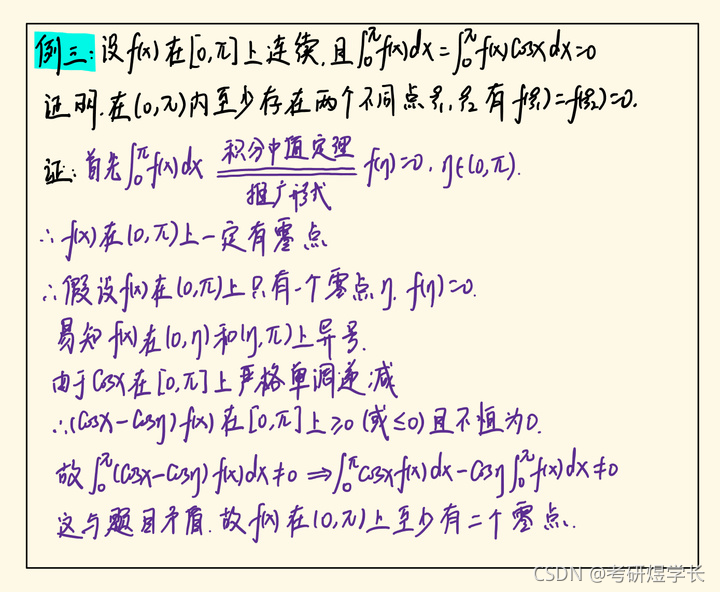 例三:设f(x)在[0,π]上连续,且∫₀^π f(x)dx=∫₀^π f(x)cosxdx=0
证明.在(0,π)内至少存在两个不同点ξ₁,ξ₂有f(ξ₁)=f(ξ₂)=0.
证:首先∫₀^π f(x)dx 积分中值定理 f(η)=0,η∈(0,π).
推广形式
∴f(x)在(0,π)上一定有零点
∴假设f(x)在(0,π)上只有一个零点η, f(η)=0.
易知f(x)在(0,η)和(η,π)上异号.
由于cosx在[0,π]上严格单调递减
∴(cosx-cosη)f(x)在[0,π]上≥0(或≤0)且不恒为0.
故∫₀^π(cosx-cosη)f(x)dx≠0⇒∫₀^π cosxf(x)dx-cosη∫₀^π f(x)dx≠0
这与题目矛盾.故f(x)在(0,π)上至少有二个零点.
CSDN @考研煜学长